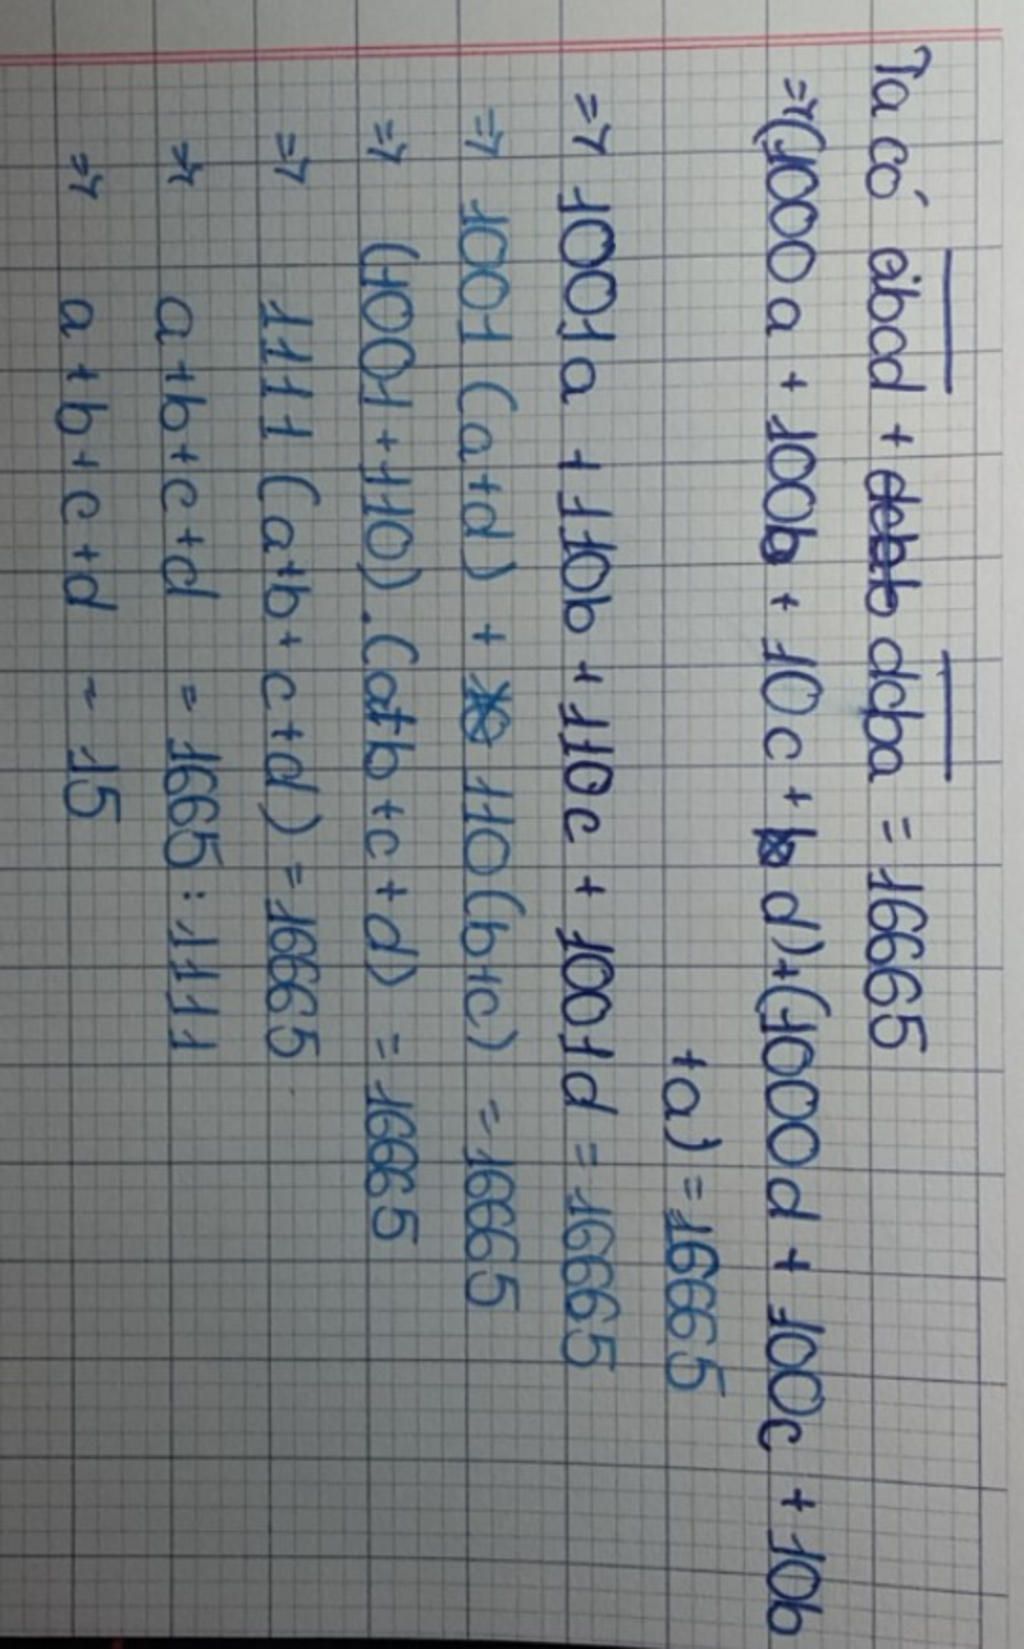 Ta có abcd + dcba = 16665
=> (1000a + 100b + 10c + d) + (1000d + 100c + 10b
+a) = 16665
=> 1001a + 110b + 110c + 1001d = 16665
=> 1001 (a+d) + 110(b+c) = 16665
=> (1001+110).(a+b+c+d) = 16665
=> 1111 (a+b+c+d) = 16665
=> a+b+c+d = 1665:1111
=> a+b+c+d = 15